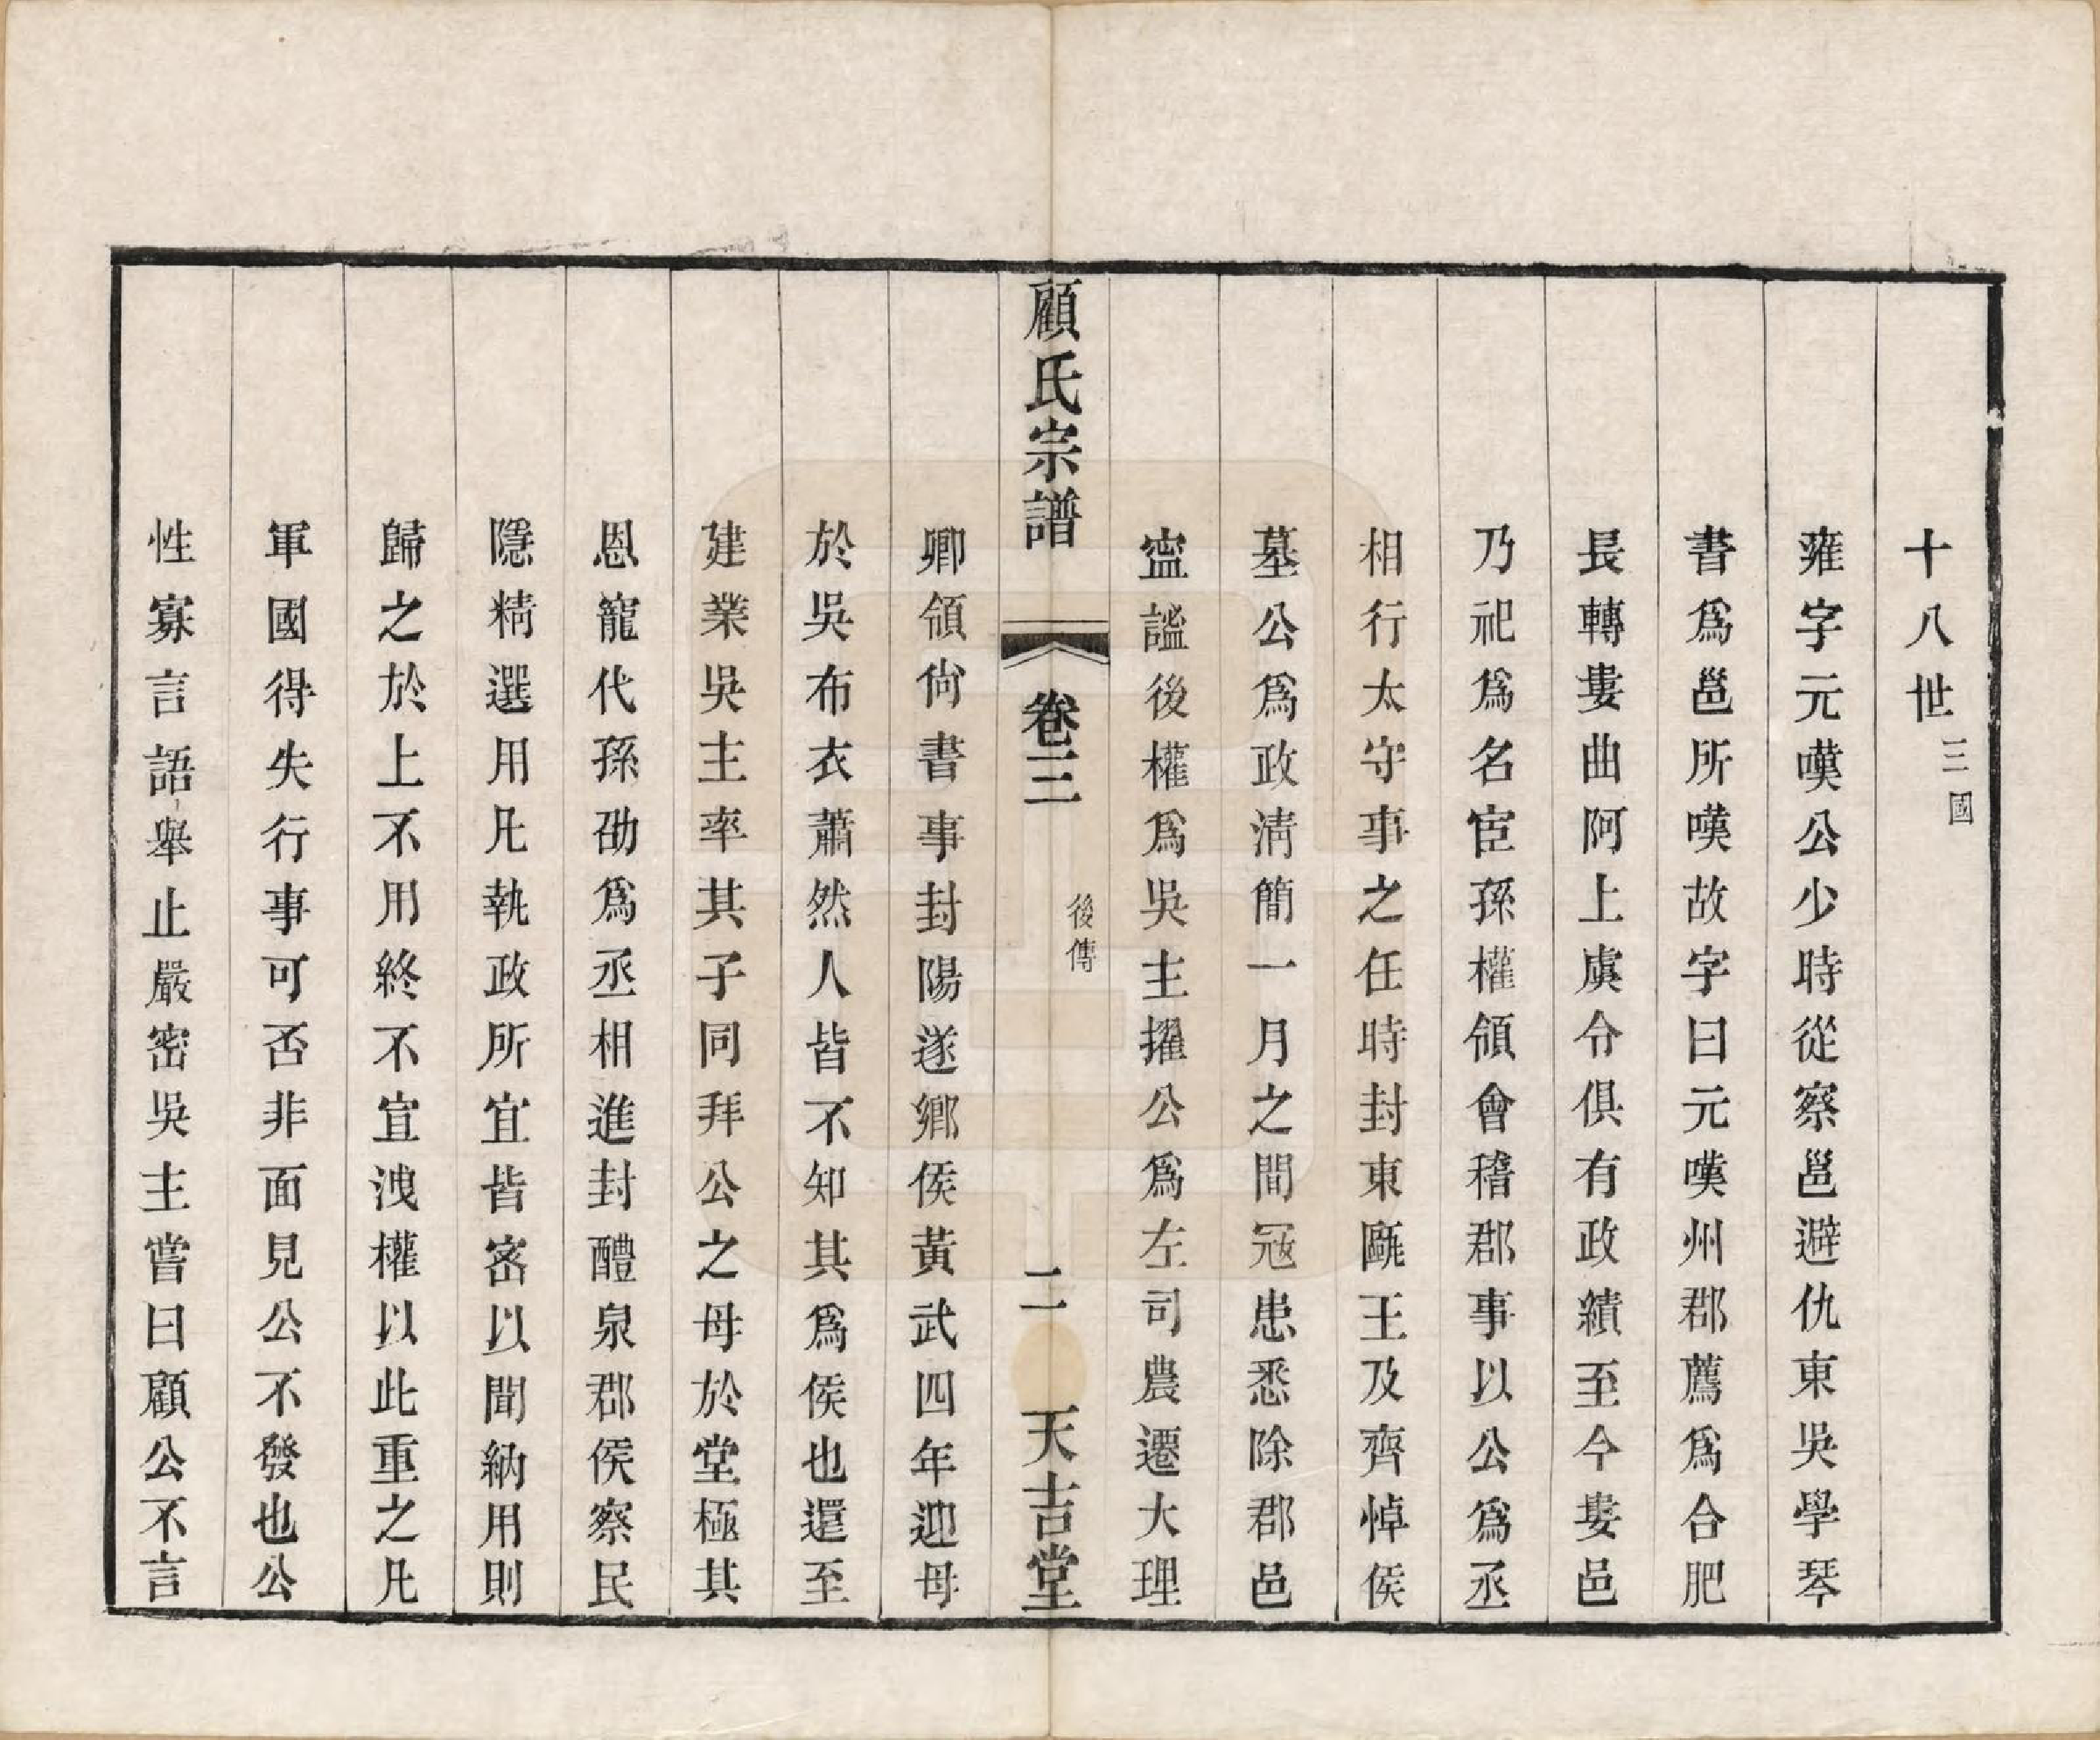 十八世三國
雍字元嘆公少時從蔡邕避仇東吳學琴
書爲邕所嘆故字曰元嘆州郡薦爲合肥
長轉婁曲阿上虞令俱有政績至今婁邑
乃祀爲名宦孫權領會稽郡事以公爲丞
相行太守事之任時封東甌王及齊悼侯
墓公爲政淸簡一月之間冦患悉除郡邑
寍謐後權爲吳主擢公爲左司農遷大理
顧氏宗譜 卷三 後傳 二 天吉堂
卿領尙書事封陽遂鄉侯黃武四年迎母
於吳布衣蕭然人皆不知其爲侯也還至
建業吳主率其子同拜公之母於堂極其
恩寵代孫劭爲丞相進封醴泉郡侯察民
隱精選用凡執政所宜皆密以聞納用則
歸之於上不用終不宣洩權以此重之凡
軍國得失行事可否非面見公不發也公
性寡言語舉止嚴密吳主嘗曰顧公不言